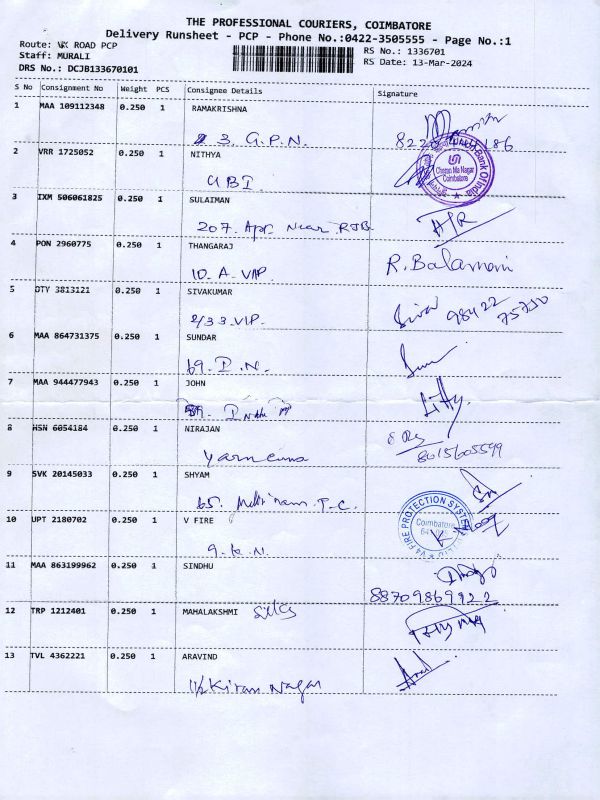 THE PROFESSIONAL COURIERS, COIMBATORE
Delivery Runsheet - PCP - Phone No.:0422-3505555 - Page No.:1
Route: VK ROAD PCP
Staff: MURALI
DRS No.: DCJB133670101
RS No.: 1336701
RS Date: 13-Mar-2024
S No Consignment No Weight PCS Consignee Details Signature
1 MAA 109112348 0.250 1 RAMAKRISHNA
3. G.P.N.
2 VRR 1725052 0.250 1 NITHYA
UBI
Bank Of India
Coimbatore
3 IXM 506061825 0.250 1 SULAIMAN
207. App. Near RJB
4 PON 2960775 0.250 1 THANGARAJ
10. A. VIP R. Balamani
5 OTY 3813121 0.250 1 SIVAKUMAR
2/33 VIP. Siva 98422 75750
6 MAA 864731375 0.250 1 SUNDAR
69. I. N.
7 MAA 944477943 0.250 1 JOHN
8 HSN 6054184 0.250 1 NIRAJAN
8015605599
9 SVK 20145033 0.250 1 SHYAM
65. T-C.
10 UPT 2180702 0.250 1 V FIRE
9. K. N.
V4 FIRE PROTECTION SYSTEM
Coimbatore
11 MAA 863199962 0.250 1 SINDHU
8870986992 2
12 TRP 1212401 0.250 1 MAHALAKSHMI Silks
13 TVL 4362221 0.250 1 ARAVIND
1/2 Kiran Nagar